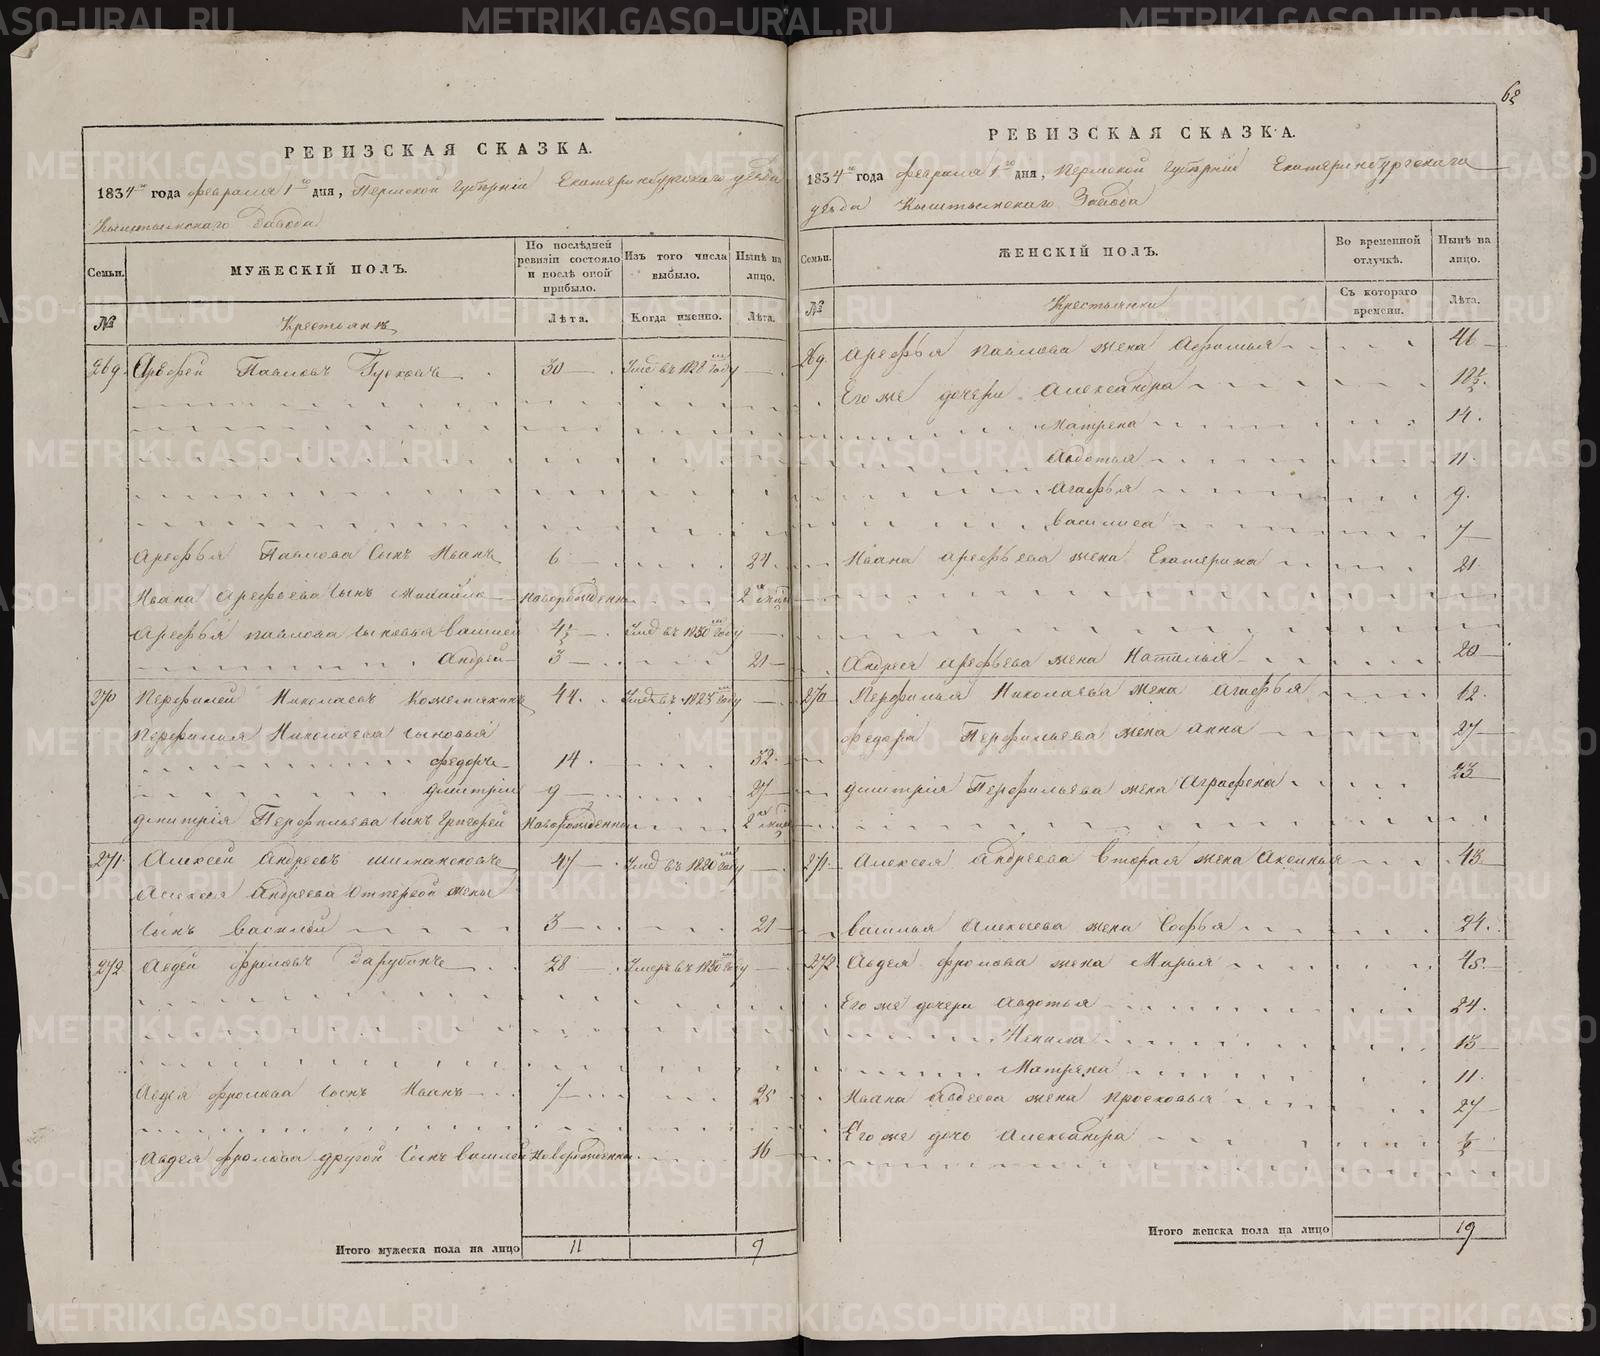 62
РЕВИЗСКАЯ СКАЗКА.
1834го года февраля 1го дня, Пермской Губернiи Екатеринбургского уезда
Кыштымского Завода
Семьи. МУЖЕСКIЙ ПОЛЪ. По послѣдней ревизiи состояло и послѣ оной прибыло. Изъ того числа выбыло. Нынѣ на лицо.
№ Крестьянъ Лѣта. Когда именно. Лѣта.
269. Арефей Павловъ Гусковъ 30 Умеръ въ 1828 году
Арефья Павлова Сынъ Иванъ 6 24.
Ивана Арефьева Сынъ Михайло Новорожденны 2
Арефья Павлова Сыновья Василей 4½ Умеръ въ 1830 году
Андрей 3 21
270 Перфилей Николаевъ Кожемякинъ 44. Умеръ въ 1825 году
Перфилья Николаева Сыновья
Федоръ 14. 32.
Дмитрiй 9 27
Дмитрiя Перфильева Сынъ Григорей Новорожденны 2
271. Алексей Андреевъ 47 Умеръ въ 1820 году
Алексея Андреева Отпервой жены
Сынъ Василей 3 21
272 Авдей Фроловъ Зарубинъ 28 Умеръ въ 1830 году
Авдея Фролова Сынъ Иванъ 7 25
Авдея Фролова другой Сынъ Василей Новорожденны. 16
Итого мужеска пола на лицо 11 9
РЕВИЗСКАЯ СКАЗКА.
1834го года февраля 1го дня, Пермской Губернiи Екатеринбургскаго
уезда Кыштымскаго Завода
Семьи. ЖЕНСКIЙ ПОЛЪ. Во временной отлучкѣ. Нынѣ на лицо.
№ Крестьянки Съ котораго времени. Лѣта.
269. Арефья Павлова жена Афимья 46
Его же дочери Александра 18½.
Матрена 14.
Авдотья 11.
Агафья 9.
Василиса 7
Ивана Арефьева жена Екатерина 21.
Андрея Арефьева жена Наталья 20
270 Перфилья Николаева жена Агафья 12.
Федора Перфильева жена Анна 27
Дмитрiя Перфильева жена Аграфена 23
271. Алексея Андреева вторая жена Аксинья 43.
Василья Алексеева жена Софья 24.
272. Авдея Фролова жена Марья 45.
Его же дочери Авдотья 24.
Ненила 13
Матрена 11.
Ивана Авдеева жена Просковья 27
Его же дочь Александра ½
Итого женска пола на лицо 19
METRIKI.GASO-URAL.RU